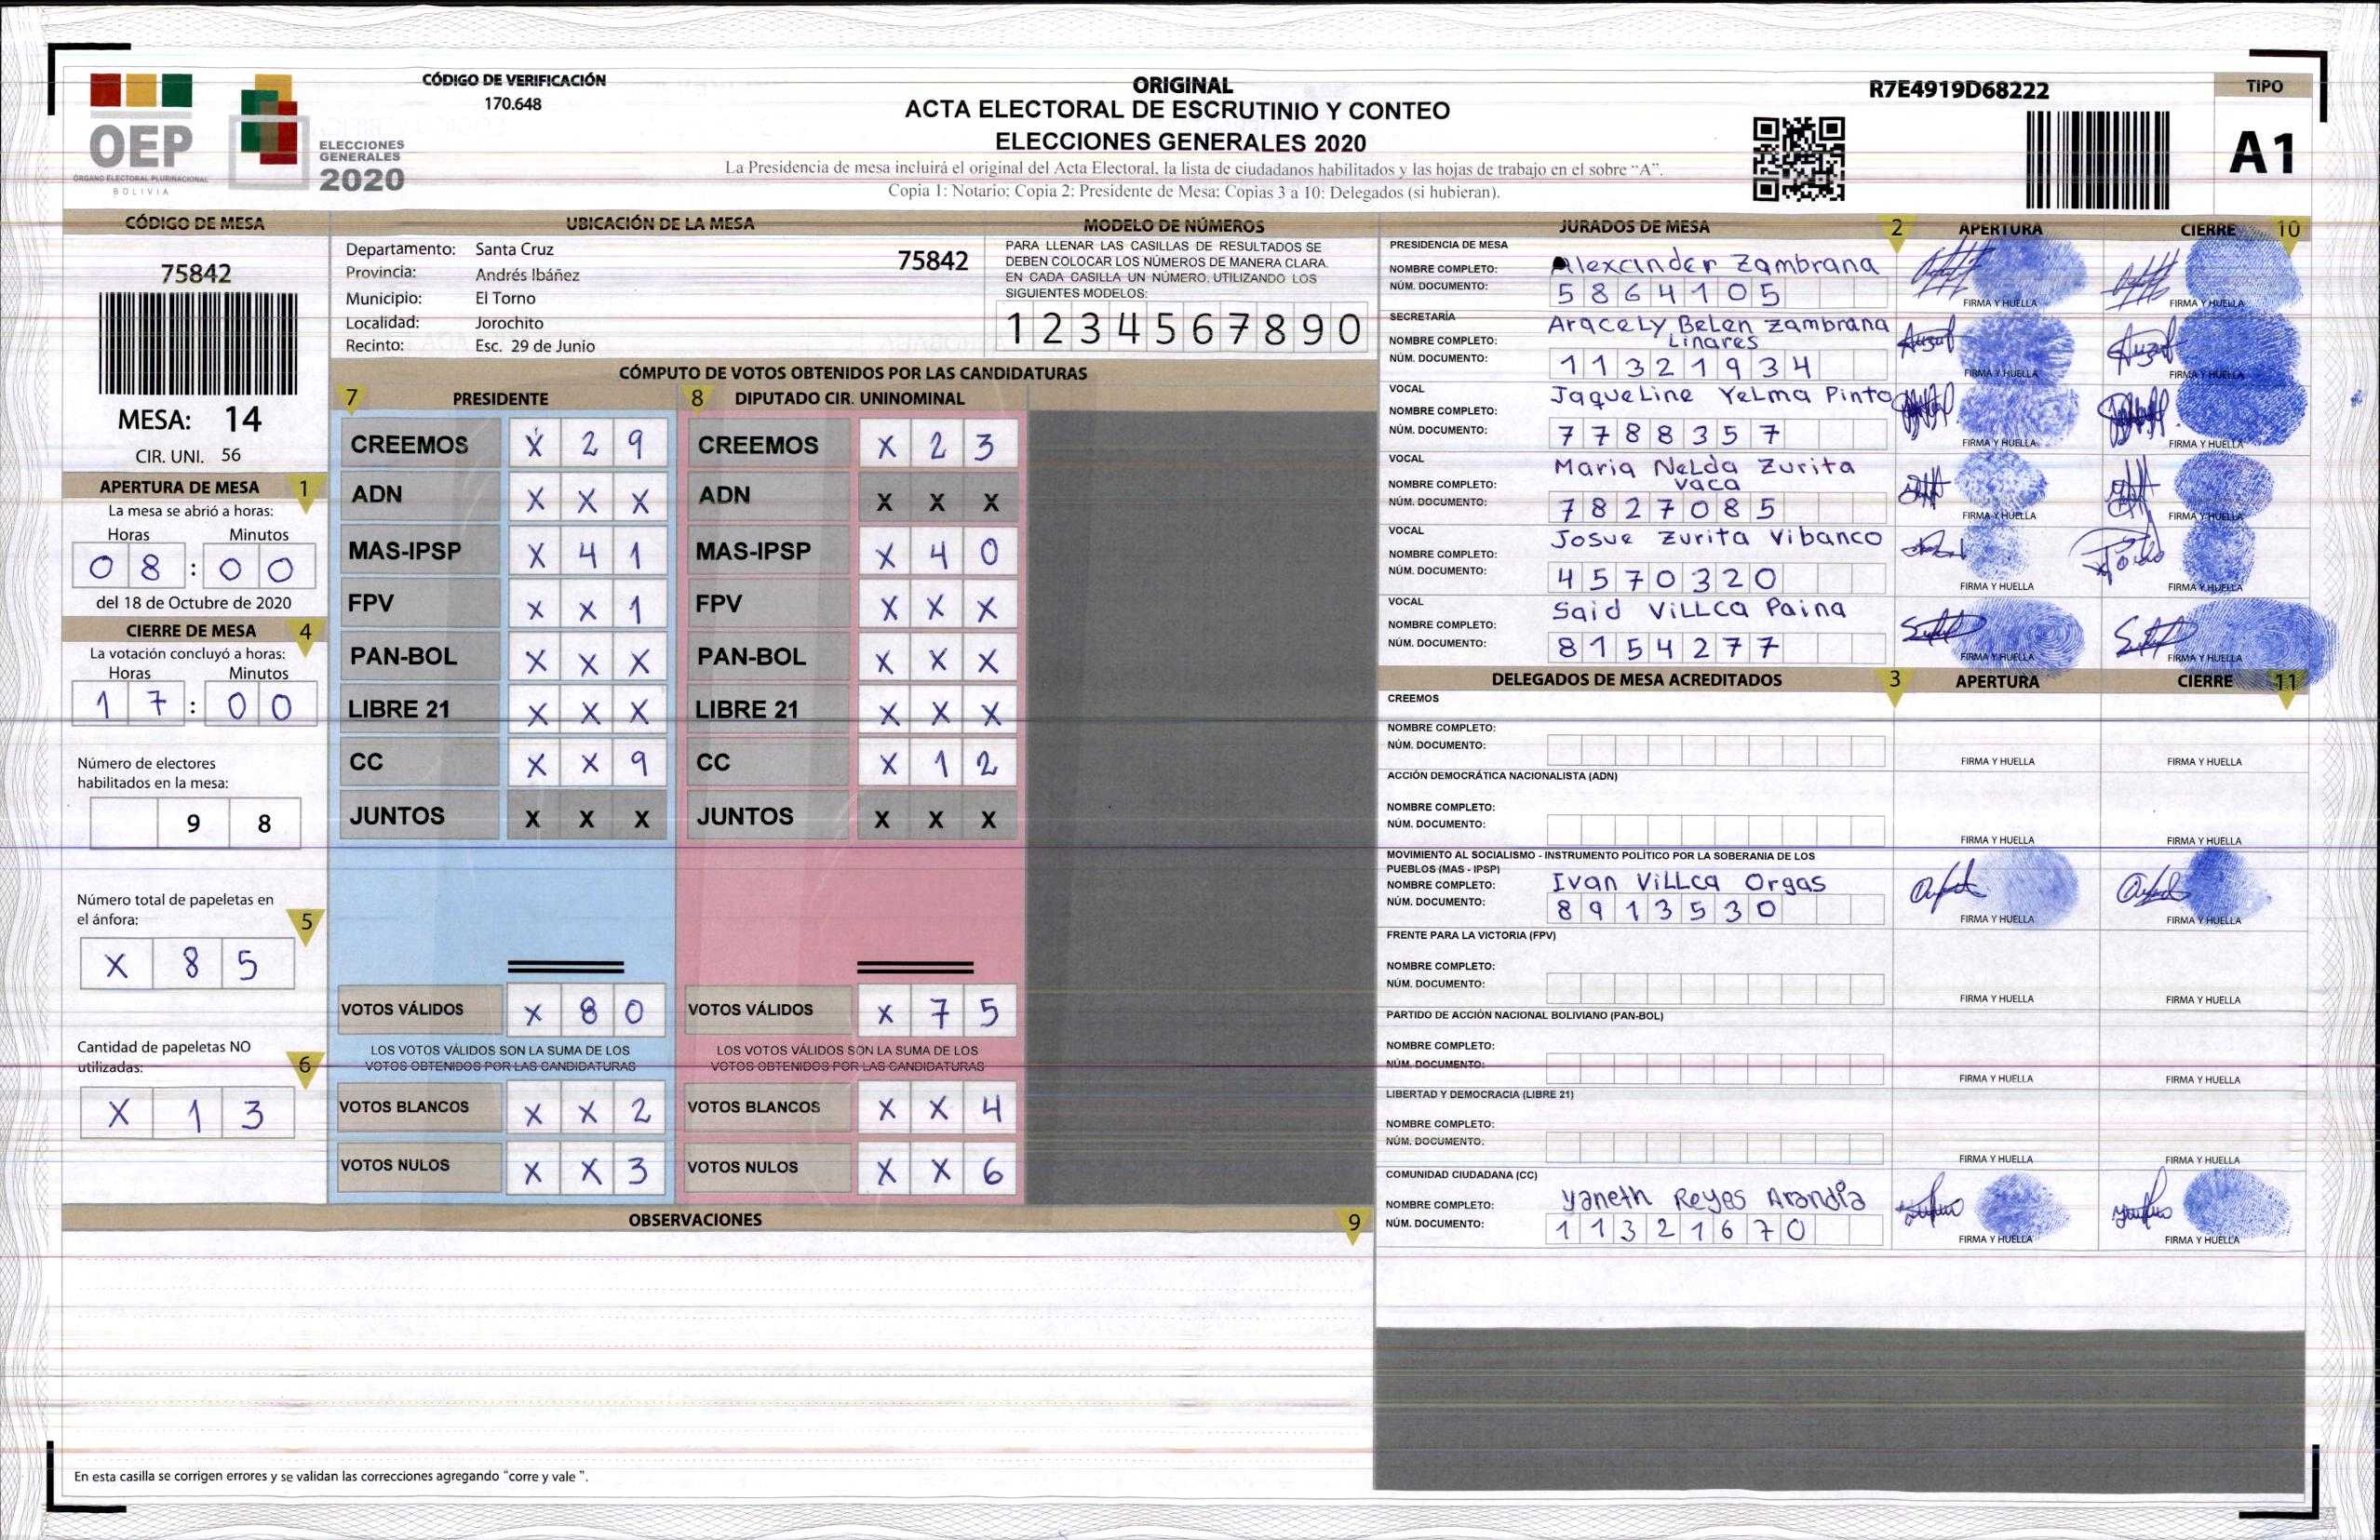 OEP
ÓRGANO ELECTORAL PLURINACIONAL
BOLIVIA
ELECCIONES
GENERALES
2020
CÓDIGO DE VERIFICACIÓN
170.648
ORIGINAL
ACTA ELECTORAL DE ESCRUTINIO Y CONTEO
ELECCIONES GENERALES 2020
La Presidencia de mesa incluirá el original del Acta Electoral, la lista de ciudadanos habilitados y las hojas de trabajo en el sobre “A”.
Copia 1: Notario; Copia 2: Presidente de Mesa; Copias 3 a 10: Delegados (si hubieran).
R7E4919D68222
TIPO
A1
CÓDIGO DE MESA
75842
MESA: 14
CIR. UNI. 56
APERTURA DE MESA 1
La mesa se abrió a horas:
Horas Minutos
0 8 : 0 0
del 18 de Octubre de 2020
CIERRE DE MESA 4
La votación concluyó a horas:
Horas Minutos
1 7 : 0 0
Número de electores
habilitados en la mesa:
9 8
Número total de papeletas en
el ánfora: 5
X 8 5
Cantidad de papeletas NO
utilizadas: 6
X 1 3
UBICACIÓN DE LA MESA
Departamento: Santa Cruz 75842
Provincia: Andrés Ibáñez
Municipio: El Torno
Localidad: Jorochito
Recinto: Esc. 29 de Junio
MODELO DE NÚMEROS
PARA LLENAR LAS CASILLAS DE RESULTADOS SE
DEBEN COLOCAR LOS NÚMEROS DE MANERA CLARA.
EN CADA CASILLA UN NÚMERO, UTILIZANDO LOS
SIGUIENTES MODELOS:
1 2 3 4 5 6 7 8 9 0
CÓMPUTO DE VOTOS OBTENIDOS POR LAS CANDIDATURAS
7 PRESIDENTE 8 DIPUTADO CIR. UNINOMINAL
CREEMOS X 2 9 CREEMOS X 2 3
ADN X X X ADN X X X
MAS-IPSP X 4 1 MAS-IPSP X 4 0
FPV X X 1 FPV X X X
PAN-BOL X X X PAN-BOL X X X
LIBRE 21 X X X LIBRE 21 X X X
CC X X 9 CC X 1 2
JUNTOS X X X JUNTOS X X X
VOTOS VÁLIDOS X 8 0 VOTOS VÁLIDOS X 7 5
LOS VOTOS VÁLIDOS SON LA SUMA DE LOS LOS VOTOS VÁLIDOS SON LA SUMA DE LOS
VOTOS OBTENIDOS POR LAS CANDIDATURAS VOTOS OBTENIDOS POR LAS CANDIDATURAS
VOTOS BLANCOS X X 2 VOTOS BLANCOS X X 4
VOTOS NULOS X X 3 VOTOS NULOS X X 6
OBSERVACIONES 9
En esta casilla se corrigen errores y se validan las correcciones agregando “corre y vale ”.
JURADOS DE MESA 2 APERTURA CIERRE 10
PRESIDENCIA DE MESA
NOMBRE COMPLETO: Alexander Zambrana
NÚM. DOCUMENTO: 5 8 6 4 1 0 5
FIRMA Y HUELLA FIRMA Y HUELLA
SECRETARÍA
NOMBRE COMPLETO: Aracely Belen Zambrana
Linares
NÚM. DOCUMENTO: 1 1 3 2 1 9 3 4
FIRMA Y HUELLA FIRMA Y HUELLA
VOCAL
NOMBRE COMPLETO: Jaqueline Yelma Pinto
NÚM. DOCUMENTO: 7 7 8 8 3 5 7
FIRMA Y HUELLA FIRMA Y HUELLA
VOCAL
NOMBRE COMPLETO: Maria Nelda Zurita
Vaca
NÚM. DOCUMENTO: 7 8 2 7 0 8 5
FIRMA Y HUELLA FIRMA Y HUELLA
VOCAL
NOMBRE COMPLETO: Josue Zurita Vibanco
NÚM. DOCUMENTO: 4 5 7 0 3 2 0
FIRMA Y HUELLA FIRMA Y HUELLA
VOCAL
NOMBRE COMPLETO: Said Villca Paina
NÚM. DOCUMENTO: 8 1 5 4 2 7 7
FIRMA Y HUELLA FIRMA Y HUELLA
DELEGADOS DE MESA ACREDITADOS 3 APERTURA CIERRE 11
CREEMOS
NOMBRE COMPLETO:
NÚM. DOCUMENTO:
FIRMA Y HUELLA FIRMA Y HUELLA
ACCIÓN DEMOCRÁTICA NACIONALISTA (ADN)
NOMBRE COMPLETO:
NÚM. DOCUMENTO:
FIRMA Y HUELLA FIRMA Y HUELLA
MOVIMIENTO AL SOCIALISMO - INSTRUMENTO POLÍTICO POR LA SOBERANIA DE LOS
PUEBLOS (MAS - IPSP)
NOMBRE COMPLETO: Ivan Villca Orgas
NÚM. DOCUMENTO: 8 9 1 3 5 3 0
FIRMA Y HUELLA FIRMA Y HUELLA
FRENTE PARA LA VICTORIA (FPV)
NOMBRE COMPLETO:
NÚM. DOCUMENTO:
FIRMA Y HUELLA FIRMA Y HUELLA
PARTIDO DE ACCIÓN NACIONAL BOLIVIANO (PAN-BOL)
NOMBRE COMPLETO:
NÚM. DOCUMENTO:
FIRMA Y HUELLA FIRMA Y HUELLA
LIBERTAD Y DEMOCRACIA (LIBRE 21)
NOMBRE COMPLETO:
NÚM. DOCUMENTO:
FIRMA Y HUELLA FIRMA Y HUELLA
COMUNIDAD CIUDADANA (CC)
NOMBRE COMPLETO: Yaneth Reyes Arandia
NÚM. DOCUMENTO: 1 1 3 2 1 6 7 0
FIRMA Y HUELLA FIRMA Y HUELLA